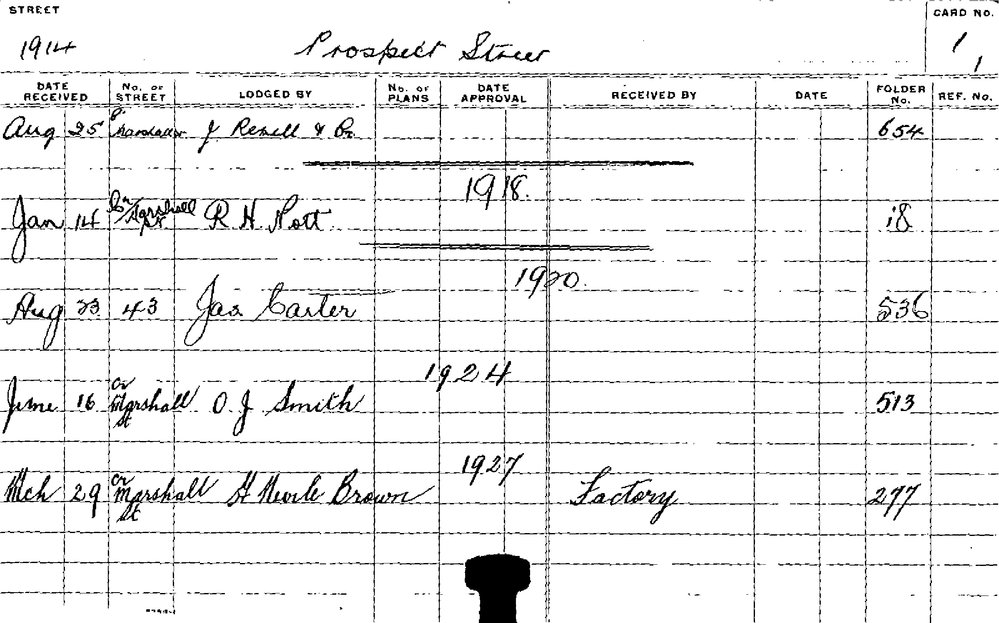 STREET
CARD NO.
1914 Prospect Street 1
1
DATE RECEIVED No. OF STREET LODGED BY No. OF PLANS DATE APPROVAL RECEIVED BY DATE FOLDER No. REF. No.
Aug 25 J & 654
1918.
Jan 14 Cr Marshall St R. H. Nott 18
1920.
Aug 23 43 Jas Carter 536
1924
June 16 cr Marshall St O. J. Smith 513
1927
Mch 29 cr Marshall St H Nevile Brown Factory 277